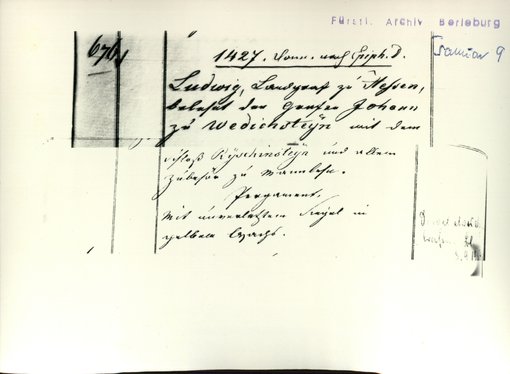 Fürstl. Archiv Berleburg
Januar 9
676
1427. Donn. nach Epiph. D.
Ludwig, Landgraf zu Hessen,
belehnt den Grafen Johann
zu Wedichsteyn mit dem
Schloß Ryschinsteyn und allem
Zubehör zu Mannlehn.
Pergament.
Mit unverletztem Siegel in
gelbem Wachs.